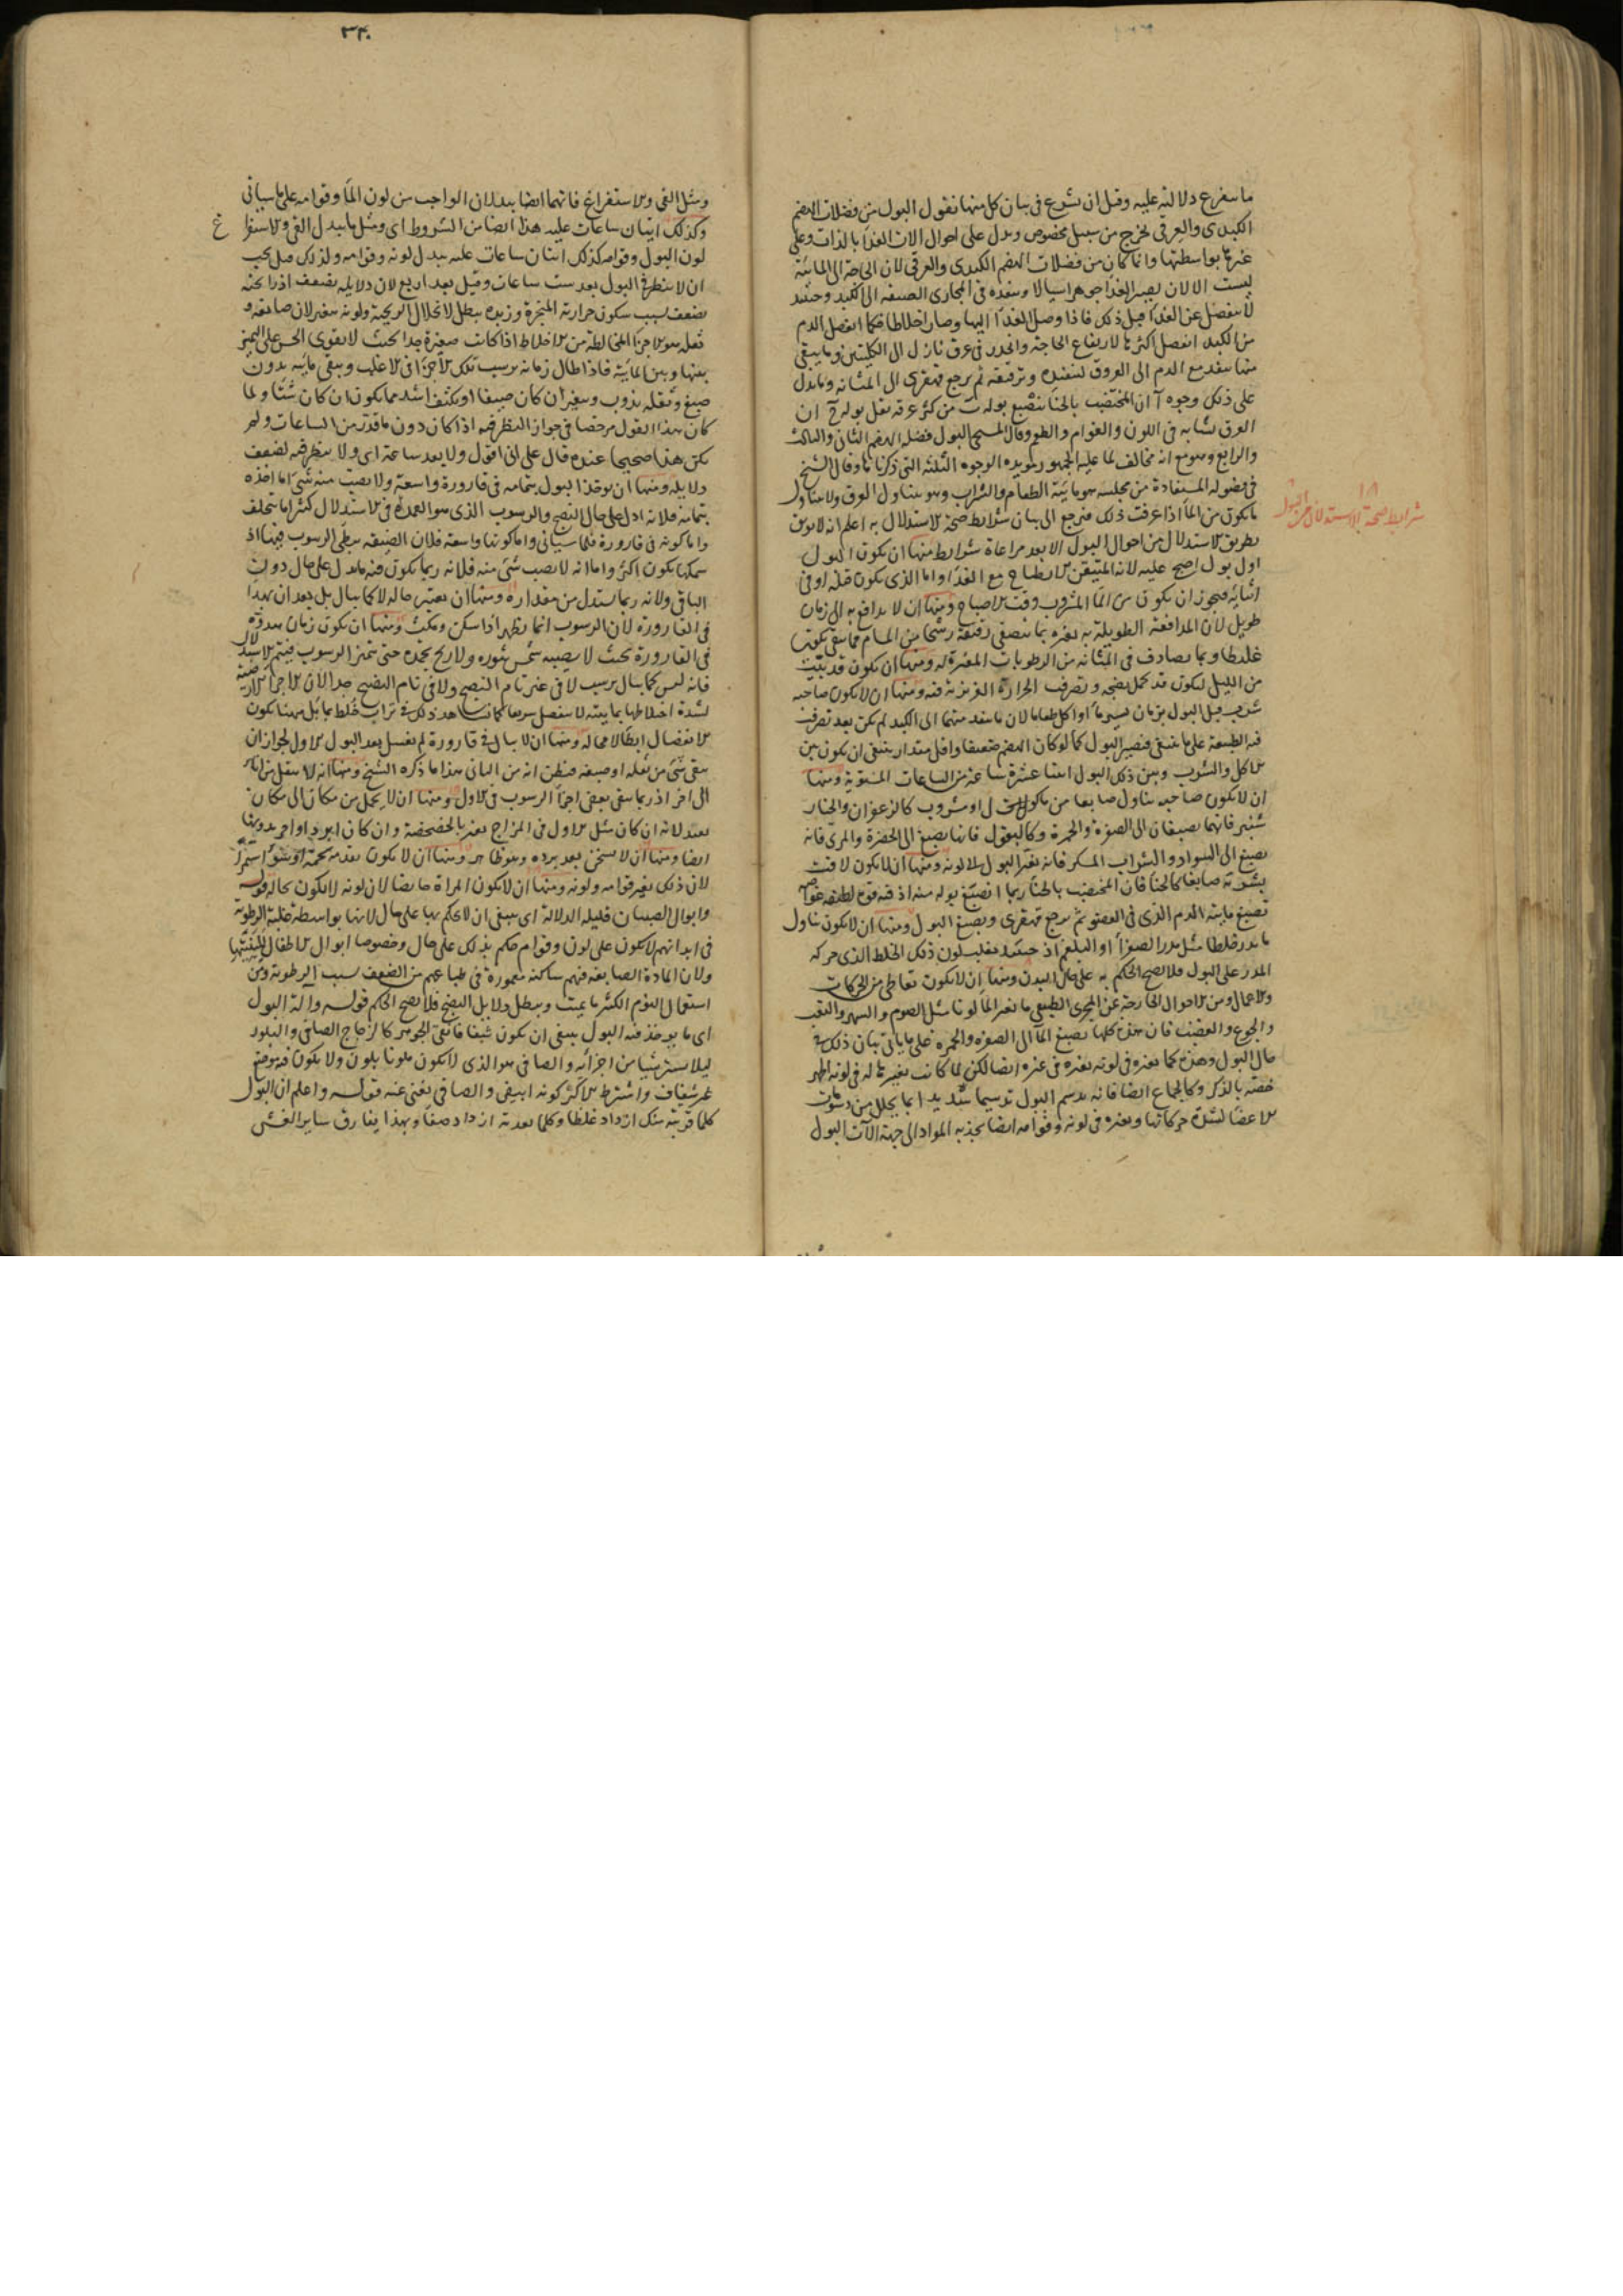 ما يتفرع دلالته عليه وقبل ان نشرع فى بيان كل منها نقول البول من فضلات الهضم
الكبدى والعرقى يخرج من سبيل مخصوص ويدل على احوال آلات الغذا بالذات وعلى
غيرها بواسطتها وانما كان من فضلات الهضم الكبدى والعرقى لان الحاجة الى المائية
ليست الا لان يصير الغذا جوهرا سيالا وينفذه فى المجارى الضيقة الى الكبد وحينئذ
لا ينفصل عن الغذا قبل ذلك فاذا وصل الغذا اليها وصار اخلاطا فكما انفصل الدم
من الكبد انفصل اكثرها لارتفاع الحاجة وانحدر فى عرق نازل الى الكليتين وما يبقى
منها ينفذ مع الدم الى العروق لتنفيذه وترقيقه ثم يرجع قهقرى الى المثانة ومما يدل
على ذلك وجوه آ ان المختضب بالحنا ينصبغ بوله ب من كثر عرقه يقل بوله ج ان
العرق يشابه فى اللون والقوام والطعم وقال المسيحى البول فضلة الهضم الثانى والثالث
والرابع وهو مع انه مخالف لما عليه الجمهور يؤيده الوجوه الثلثة التى ذكرناها وقال الشيخ
فى فصوله المستفادة من مجلسه هو مائية الطعام والشراب وهو يتناول العرق ولا يتناول
ما يكون من الما اذا عرفت ذلك فنرجع الى بيان شرايط صحة الاستدلال به اعلم انه لا يوثق
بطريق الاستدلال من احوال البول الا بعد مراعاة شرايط منها ان يكون البول
اول بول اصبح عليه
طويل لان المدافعة الطويلة به تغيره
غليظا وبما يصادف فى المثانة من الرطوبات المغيرة له ومنها ان يكون قد بيت
من الليل ليكون قد كمل نضجه وتصرفت الحرارة الغريزية فيه ومنها ان لا يكون صاحبه
شرب قبل البول بزمان يسير ما او اكل طعاما لان ما ينفذ منهما الى الكبد لم يكن بعد تصرفت
فيه الطبيعة على ما ينبغى فيصير البول كما لو كان الهضم ضعيفا واقل مقدار ينبغى ان يكون بين
الاكل والشرب وبين ذلك البول اثنتا عشرة ساعة من الساعات المستوية ومنها
ان لا يكون صاحبه يتناول صابغا من ماكول او مشروب كالزعفران والخيار
شنبر فانهما يصبغان الى الصفرة والحمرة وكالبقول فانها يصبغ الى الخضرة والمرى فانه
يصبغ الى السواد والشراب المسكر فانه يغير البول الى لونه ومنها ان لا يكون لاقت
بشرته صابغا كالحنا فان المختضب بالحنا ربما انصبغ بوله منه
تصبغ مائية الدم الذى فى العضو ثم يرجع قهقرى ويصبغ البول ومنها ان لا يكون تناول
ما يدر خلطا مثل مدر الصفرا او البلغم اذ حينئذ يغلب لون ذلك الخلط الذى حركه
المدر على البول فلا يصح الحكم به على حال البدن ومنها ان لا يكون تعاطى من الحركات
والاعمال ومن الاحوال الخارجة عن المجرى الطبيعى ما يغير الما لونا مثل الصوم والسهر والتعب
والجوع والغضب فان هذه كلها يصبغ الما الى الصفرة والحمرة على ما ياتى بيان ذلك فى
حال البول وهذه كما تغيره فى لونه تغيره فى غيره ايضا لكن لما كانت تغييرها له فى لونه اظهر
خصه بالذكر وكالجماع ايضا فانه يدسم البول تدسيما شديدا بما يحلل من دسومات
الاعضا لشدة حركاتها ويغيره فى لونه وقوامه ايضا بجذبه المواد الى جهة آلات البول
شرايط صحة الاستدلال من البول
٣٣٠
ومثل القى والاستفراغ فانهما ايضا يبدلان الواجب من لون الما وقوامه على ما سياتى
وكذلك اتيان ساعات عليه هذا ايضا من الشروط اى ومثل ما يبدل القى والاستفراغ
لون البول وقوامه كذلك اتيان ساعات عليه يبدل لونه وقوامه ولذلك قيل يجب
ان لا ينظر فى البول بعد ست ساعات وقيل بعد اربع لان دلايله تضعف اذ رائحته
تضعف بسبب سكون حرارته المبخرة وزبده يبطل لانحلال الريحية ولونه يتغير لان صابغه و
ثقله هو الاجزا المخالطة من الاخلاط اذا كانت صغيرة جدا بحيث لا يقوى الحس على التميز
بينها وبين المائية فاذا طال زمانه يرسب تلك الاجزا فى الاغلب ويبقى مائيه بدون
صبغ وثقله يذوب ويتغير ان كان صيفا او يكثف اشد مما يكون ان كان شتا ولما
كان هذا القول مرخصا فى جواز النظر فيه اذا كان دون ما قدر من الساعات ولم
يكن هذا صحيحا عنده قال على انى اقول ولا بعد ساعة اى ولا ينظر فيه لضعف
دلايله ومنها ان يوخذ البول بتمامه فى قارورة واسعة ولا يصب منه شى اما اخذه
بتمامه فلانه ادل على حال النضج والرسوب الذى هو العمدة فى الاستدلال كثيرا ما يتخلف
واما كونه فى قارورة فلما سياتى واما كونها واسعة فلان الضيقة يبطى الرسوب فيها اذ
سمكها يكون اكثر واما انه لا يصب شى منه فلانه ربما يكون فيه ما يدل على حال دون
الباقى ولانه ربما يستدل من مقداره ومنها ان يعتبر حاله لا كما يبال بل بعد ان يهدا
فى القارورة لان الرسوب انما يظهر اذا سكن ومكث ومنها ان يكون زمان هدوه
فى القارورة بحيث لا يصيبه شمس يثوره ولا ريح يجمده حتى يتميز الرسوب فيتم الاستدلال
فانه ليس كما يبال يرسب لا فى غير تام النضج ولا فى تام النضج جدا لان الاجزا الارضية
لشدة اختلاطها بمائيته لا ينفصل سريعا كما نشاهد ذلك فى تراب خلط بما بل مهنا يكون
الانفصال ابطا لا محالة ومنها ان لا يبال فى قارورة لم يغسل بعد البول الاول لجواز ان
يبقى شى من ثقله او صبغه فيظن انه من الثانى هذا ما ذكره الشيخ ومنها انه لا ينقل من انا
الى اخر اذ ربما يبقى بعض اجزا الرسوب فى الاول ومنها ان لا يحمل من مكان الى مكان
بعيد لانه ان كان مثل الاول فى المزاج يغير بالخضخضة وان كان ابرد او احر فبهما
ايضا ومنها ان لا يسخن بعد برده وهو ظاهر ومنها ان لا يكون تقدمه تخمة او سو استمرا
لان ذلك يغير قوامه ولونه ومنها ان لا يكون المراة حايضا لان لونه لا يكون بحاله قوله
وابوال الصبيان قليلة الدلالة اى ينبغى ان لا يحكم بها على حال لانها بواسطة غلبة الرطوبة
فى ابدانهم لا يكون على لون وقوام يحكم بذلك على حال وخصوصا ابوال الاطفال للبنيتها
ولان المادة الصابغة فيهم ساكنة مغمورة فى طباعهم من الضعف بسبب الرطوبة ومن
استعمال النوم الكثير ما يميت ويبطل دلايل النضج فلا يصح الحكم قوله وآلة البول
اى ما يوخذ فيه البول ينبغى ان يكون شيفافا نقى الجوهر كالزجاج الصافى والبلور
ليلا يستر شيا من اجزائه والصافى هو الذى لا يكون ملونا بلون ولا يكون فيه موضع
غير شفاف واشترط الاكثر كونه ابيض والصافى يغنى عنه قوله واعلم ان البول
كلما قربته منك ازداد غلظا وكلما بعدته ازداد صفا وبهذا يفارق ساير الغش